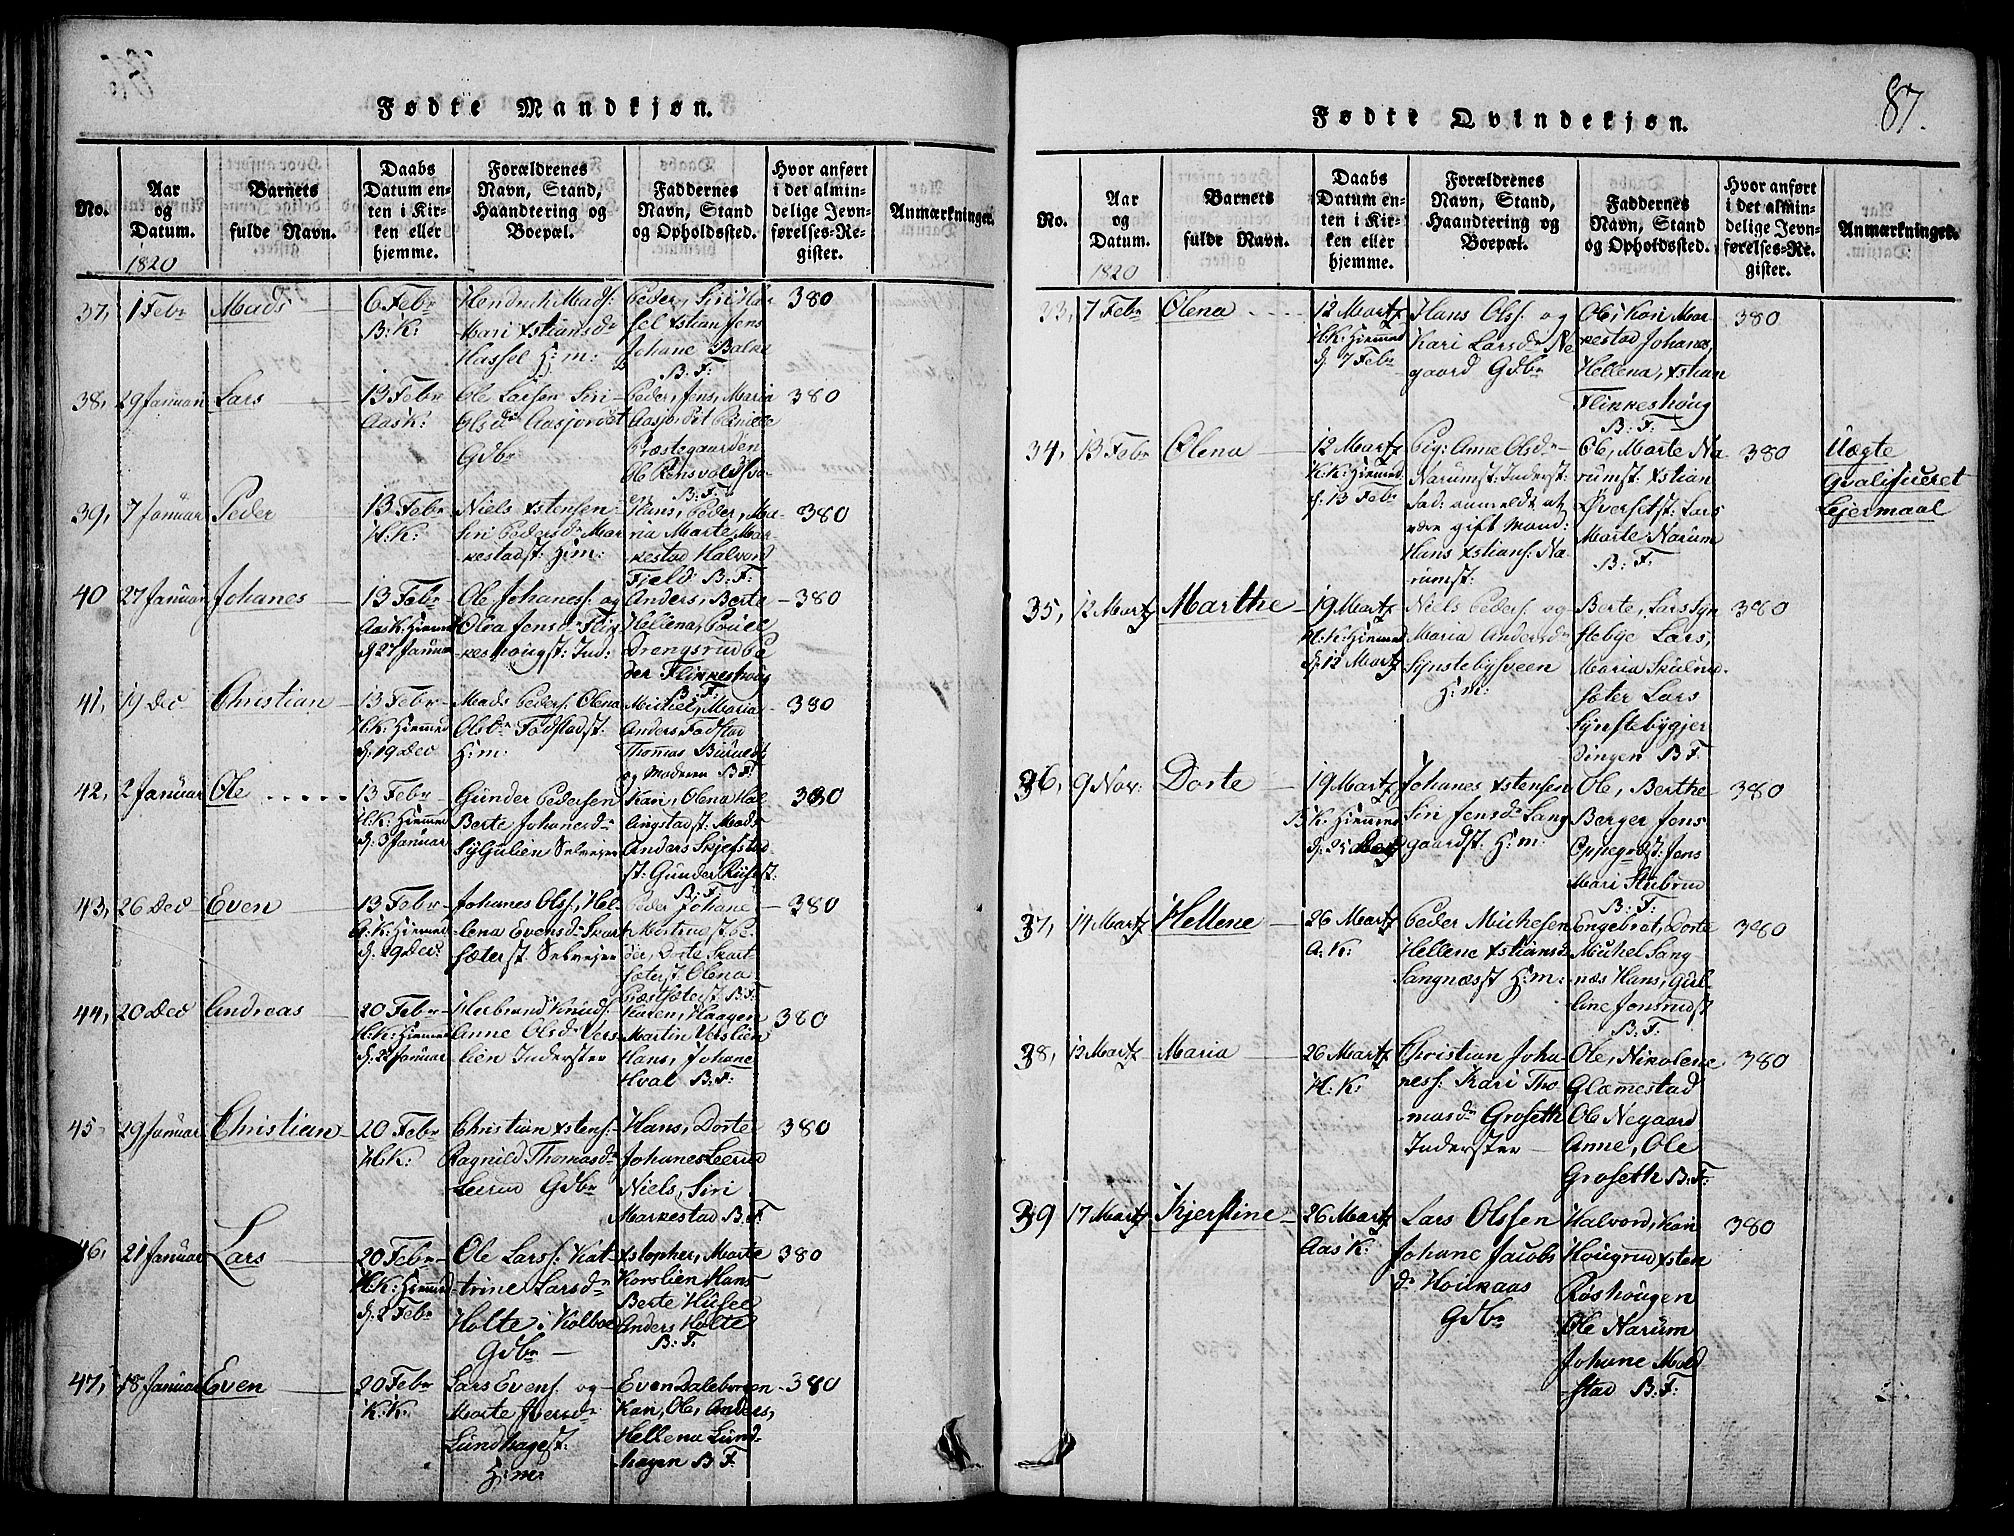 Fødte Mandkjøn.
No.
Aar
og
Datum.
1820
Barnets
fulde Navn.
Daabs
Datum en-
ten i Kir-
ken eller
hjemme.
Forældrenes
Navn, Stand,
Haandtering og
Boepæl.
Faddernes
Navn, Stand
og Opholdssted.
Hvor anført
i det almin-
delige Jevn-
førelses-Re-
gister.
Anmærkninger.
37,
1 Febr
Mads
6 Febr
B: K:
Hendrich Mads:
Mari Xstiansdr
Hassel H: m:
Peder, Siri Has
sel Xstian Jens
Johane Balke
B: F:
380
38,
29 Januari
Lars
13 Febr
Aas K:
Ole Larsen Siri
Olsdr Aasjordet
Gdbr
Peder, Jens, Maria
Aasjordet Pernille
Præstegaarden
B: F:
380
39,
7 Januar
Peder
13 Febr
H: K:
Niels Xstensen
Siri Pedersdr Mar
kestadst: H: m:
Hans, Peder, Ma-
ria Marte, Mar-
kestad Halvord
Fjeld B: F:
380
40
27 Januar
Johanes
13 Febr
Aas K: Hjemmed
d. 27 Januar
Ole Johanesf. og
Olea Jensdr Flik
keshougst: Ind:
Anders, Berte
Helena, Bouel
Drangsrud Pe
der Flikkeshoug
B: F:
380
41,
19 Dec
Christian
13 Febr
H: K: Hjemmed
d. 19 Dec
Mads Peders: Olena
Olsdr Fodstadst:
H: m:
Mickel, Maria
Anders Fodstad
Thommas
og Moderen B: F:
380
42,
2 Januar
Ole
13 Febr
H: K: Hjemmed
d. 3 Januar
Gunder Pedersen
Berte Johanesdr
Selvejer
Kari, Olena Hal
lingstadst: Mads
Anders Skjefstad
st: Gunder
B: F:
380
43,
26 Dec
Even
13 Febr
H: K: Hjemmed
d. 29 Dec:
Johanes Olss: Hel-
lena Evensdr Skart
sæterst Selvejer
Peder Johane
Pe-
der, Dorte Skart-
sæterst Olena
Præstsæterst B: F:
380
44,
20 Dec
Andreas
20 Febr
H: K: Hjemmed
d. 22 Januar
Herbrand Knuds:
Anne Olsdr Vers
lien Inderster
Karen, Haagen
Martin Verslien
Hans, Johane
Hval B: F:
380
45
29 Januar
Christian
20 Febr
H: K:
Christian Xstens:
Ragnild Thomasdr
Leerud Gdbr
Hans, Dorte
Johanes Leerud
Niels, Siri
Markestad B: F:
380
46,
21 Januar
Lars
20 Febr
H: K: Hjemmed
d: 2 Febr
Ole Larss: Kat
trine Larsdr
Holte i Kolboe
Gdbr
Xstopher, Marte
Korslien Hans
Berte
Anders Holte
B: F:
380
47,
18 Januar
Even
20 Febr
K: K:
Lars Evens: og
Marte Iversdr
Lundhagest:
H: m:
Even Daleborgen
Kari, Ole, Anders,
Hellena Lund-
hagen B: F:
380
87.
Fødte Qvindekjøn.
No.
Aar
og
Datum.
1820
Barnets
fulde Navn.
Daabs
Datum en-
ten i Kir-
ken eller
hjemme.
Forældrenes
Navn, Stand,
Haandtering og
Boepæl.
Faddernes
Navn, Stand
og Opholdssted.
Hvor anført
i det almin-
delige Jevn-
førelses-Re-
gister.
Anmærkninger.
33,
7 Febr
Olena
12 Martz
H: K: Hjemmed
d. 7 Febr
Hans Olss: og
Kari Larsdr Ne
gaard Gdbr
Ole, Kari Mar-
kestad Johanes,
Hellena, Xstian
Flikkeshoug
B: F:
380
34,
13 Febr
Olena
12 Martz
K: K: Hjemmed
d. 13 Febr
Pig: Anne Olsdr
Narumst: Inderst:
Fad: anmeldt at
være gift Mand:
Hans Xstians: Na-
rumst:
Ole, Marte Na
rumst Xstian
Øversetst: Lars
Marte Narum
B: F:
380
Uægte
Qvalifiseret
Lejermaal
35,
12 Martz
Marthe
19 Martz
H: K: Hjemmed
d. 12 Martz
Niels Peders: og
Maria Andersdr
Synstebysveen
H: m:
Berte, Lars Syn
stebye Lars,
Maria
sæter Lars
Synstebygjer
dingen B: F:
380
36,
9 Nov:
Dorte
19 Martz
B: K: Hjemmed
Johanes Xstensen
Siri Jensdr Lang
gaardst: H: m:
Ole, Berthe
Berger Jens
Oppegrdst: Jens
Mari Stubrud
B: F:
380
37,
14 Martz
Hellene
26 Martz
A: K:
Peder Michelsen
Hellene Xstiansd
Langnæsst H: m:
Engebret, Dorte
Mickel Lang
næs Hans, Gul-
line Jonsrudst
B: F:
380
38,
12 Martz
Maria
26 Martz
H: K:
Christian Joha
ness: Kari Tho
masdr Groseth
Inderster
Ole, Nikolene
Glæmestad
Ole Negaard
Anne, Ole
Groseth B: F:
380
39
17 Martz
Kjerstine
26 Martz
Aas K:
Lars Olssen
Johane Jacobs
dr Houkaas
Gdbr
Halvord, Kari
Hougrud Xsten
Røshougen
Ole Narum
Johane Mold
stad B: F:
380